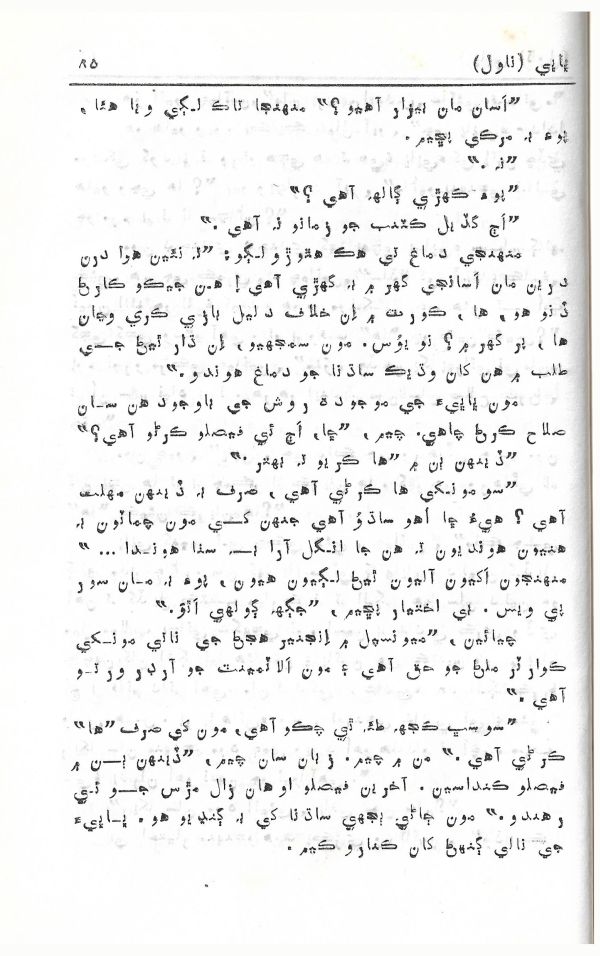 پاپي (ناول)
۸۵
”اَسان مان بيزار آهيو؟“ منهنجا ٺاڪ لڳي ويا هئا،
پوءِ بہ مرڪي پڇيم.
”نہ.“
”پوءِ ڪهڙي ڳالهہ آهي؟“
”اَڄ گڏيل ڪٽنب جو زمانو نہ آهي.“
منهنجي دماغ تي هڪ هٿوڙو لڳو: ”تہ نئين هوا درن
درين مان اَسانجي گهر ۾ بہ گهڙي آهي! هن جيڪو ڪارڻ
ڏنو هو، ها، ڪورٽ ۾ اِن خلاف دليل بازي ڪري وڃان
ها، پر گهر ۾؟ نو يؤس. مون سمجهيو، اِن ڌار ٿيڻ جي
طلب ۾ هن کان وڌيڪ ساڌنا جو دماغ هوندو.“
مون پاپيءَ جي موجوده روش جي باوجود هن سان
صلاح ڪرڻ چاهي. چيم، ”ڇا، اَڄ ئي فيصلو ڪرڻو آهي؟“
”ڏينهن ٻن ۾ ”ها ڪريو تہ بهتر.“
”سو مونکي ها ڪرڻي آهي، صرف بہ ڏينهن مهلت
آهي؟ هيءُ ڇا اُهو ساڌوُ آهي جنهن کي مون چماٽون بہ
هنيون هونديون تہ هن جا انگل آرا بہ سٺا هوندا ... “
منهنجون اَکيون آليون ٿيڻ لڳيون هيون، پوءِ بہ مان سور
پي ويس. بي اختيار پڇيم، ”جڳهہ ڳولهي اَٿوَ.“
چيائين، ”ميونسپل ۾ اِنجنير هجڻ جي ناتي مونکي
ڪوارٽر ملڻ جو حق آهي ۽ مون اَلاٽمينٽ جو آرڊر ورتو
آهي.“
”سو سڀ ڪجهہ طئہ ٿي چڪو آهي، مون کي صرف ”ها“
ڪرڻي آهي.“ من ۾ چيم. زبان سان چيم، ”ڏينهن ٻن ۾
فيصلو ڪنداسين. آخرين فيصلو اوهان زال مڙس جو ئي
رهندو.“ مون ڄاڻي ٻجهي ساڌنا کي بہ ڳنڍيو هو. پاپيءَ
جي نالي ڳنهڻ کان ڪنارو ڪيم.